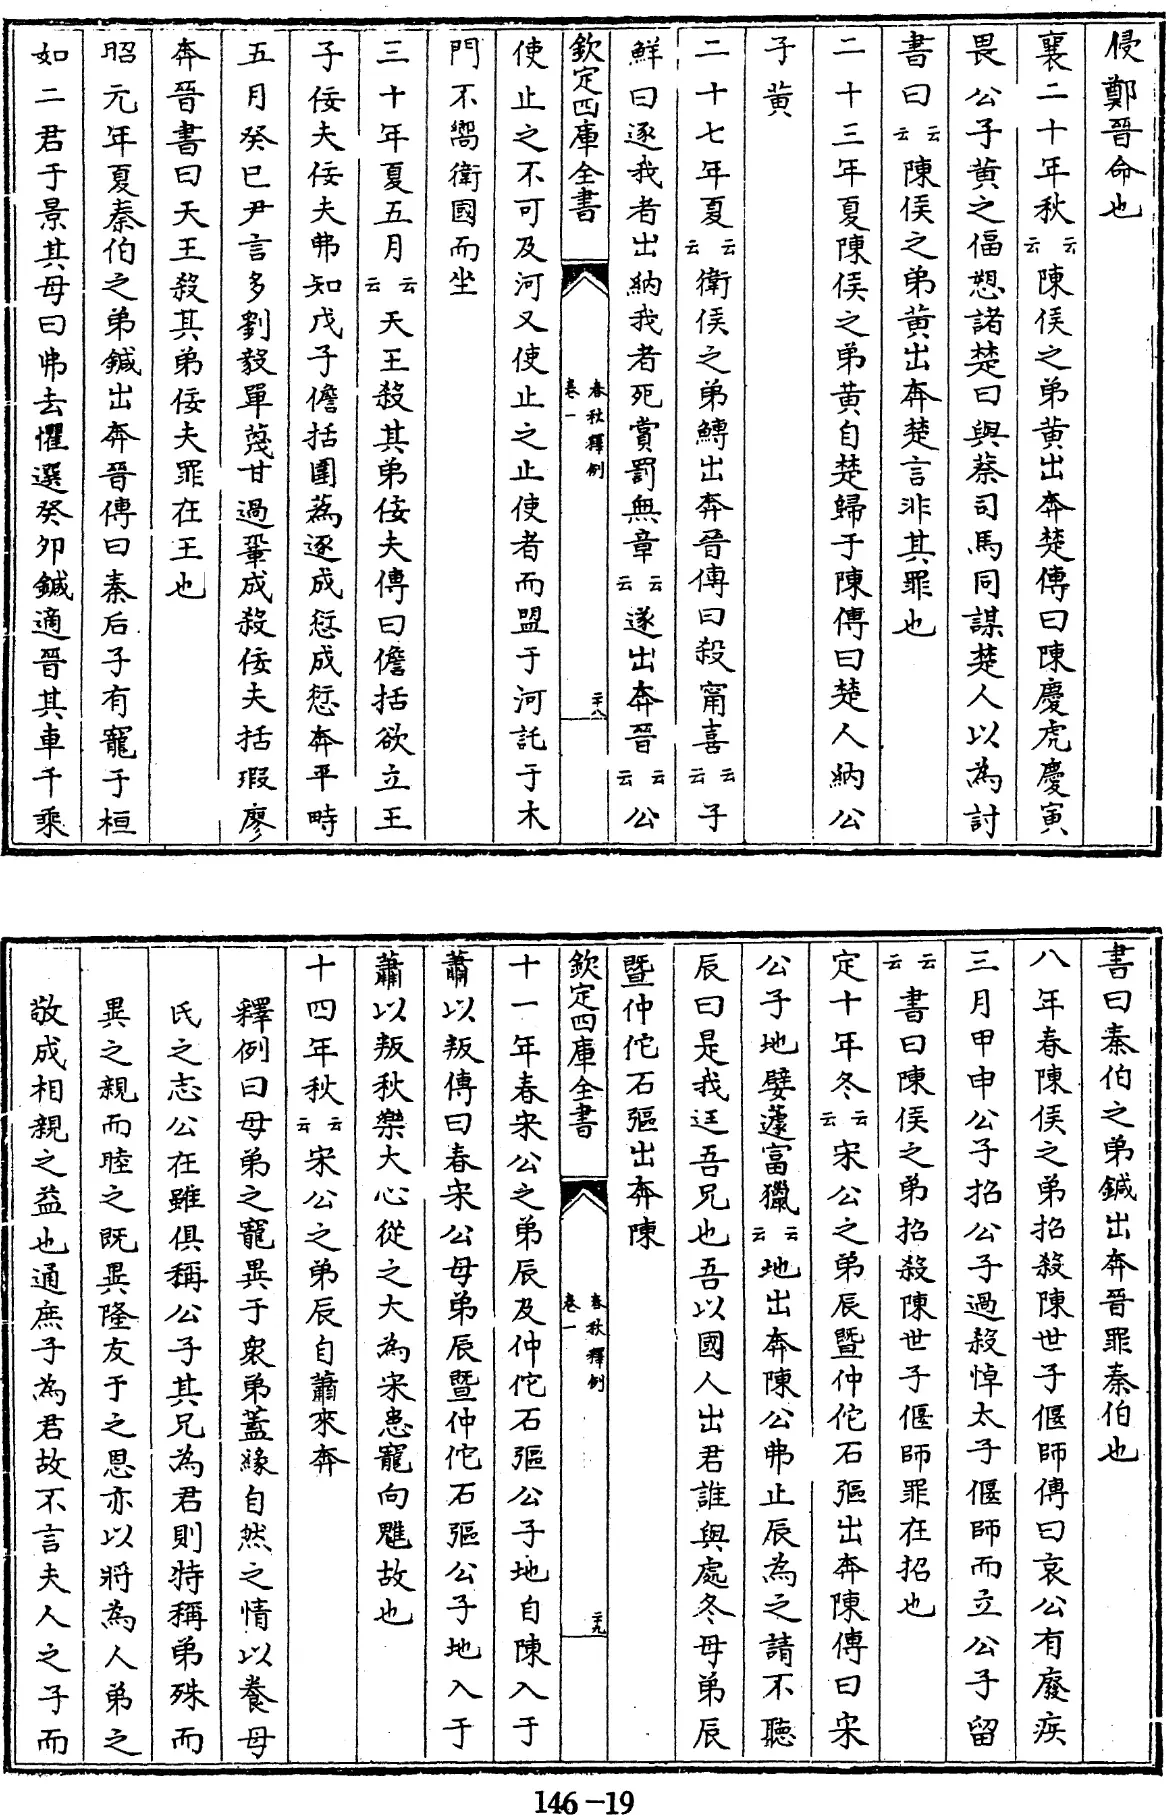 侵鄭晉命也
襄二十年秋云云陳侯之弟黄出奔楚傳曰陳慶虎慶寅
畏公子黄之偪愬諸楚曰與蔡司馬同謀楚人以為討
書曰云云陳侯之弟黄出奔楚言非其罪也
二十三年夏陳侯之弟黄自楚歸于陳傳曰楚人納公
子黄
二十七年夏云云衛侯之弟鱄出奔晉傳曰殺甯喜云云子
鮮曰逐我者出納我者死賞罰無章云云遂出奔晉云云公
欽定四庫全書
春秋釋例
卷一
二十八
使止之不可及河又使止之止使者而盟于河託于木
門不鄉衛國而坐
三十年夏五月云云天王殺其弟佞夫傳曰儋括欲立王
子佞夫佞夫弗知戊子儋括圍蒍逐成愆成愆奔平畤
五月癸巳尹言多劉毅單蔑甘過鞏成殺佞夫括瑕廖
奔晉書曰天王殺其弟佞夫罪在王也
昭元年夏秦伯之弟鍼出奔晉傳曰秦后子有寵于桓
如二君于景其母曰弗去懼選癸卯鍼適晉其車千乘
書曰秦伯之弟鍼出奔晉罪秦伯也
八年春陳侯之弟招殺陳世子偃師傳曰哀公有廢疾
三月甲申公子招公子過殺悼太子偃師而立公子留
云云書曰陳侯之弟招殺陳世子偃師罪在招也
定十年冬云云宋公之弟辰暨仲佗石彄出奔陳傳曰宋
公子地嬖蘧富獵云云地出奔陳公弗止辰為之請不聽
辰曰是我迋吾兄也吾以國人出君誰與處冬母弟辰
暨仲佗石彄出奔陳
欽定四庫全書
春秋釋例
卷一
二十九
十一年春宋公之弟辰及仲佗石彄公子地自陳入于
蕭以叛傳曰春宋公母弟辰暨仲佗石彄公子地入于
蕭以叛秋樂大心從之大為宋患寵向魋故也
十四年秋云云宋公之弟辰自蕭來奔
釋例曰母弟之寵異于衆弟蓋緣自然之情以養母
氏之志公在雖俱稱公子其兄為君則特稱弟殊而
異之親而睦之既異隆友于之恩亦以將為人弟之
敬成相親之益也通庶子為君故不言夫人之子而
146-19